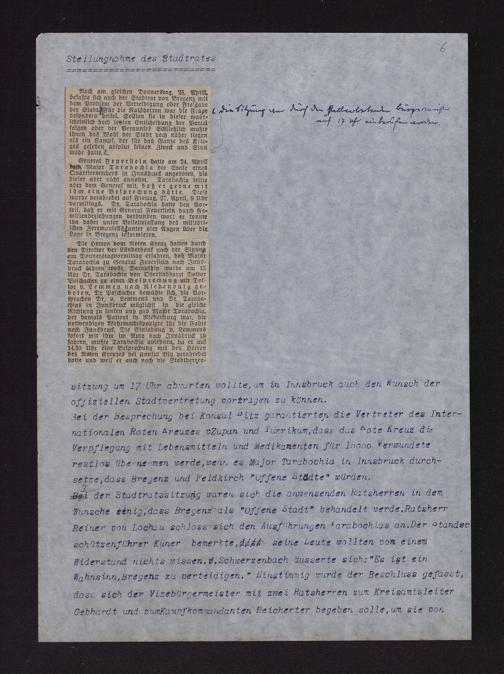 6
Stellungnahme des Stadtrates
Noch am gleichen Donnerstag, 26. April,
befaßte sich auch der Stadtrat von Bregenz mit
dem Problem der Verteidigung oder Freigabe
der Stadt. Für die Ratsherren war die Frage
besonders heikel. Sollten sie in dieser wahr-
scheinlich doch letzten Entscheidung der Partei
folgen oder der Vernunft? Schließlich mußte
ihnen das Wohl der Stadt doch näher liegen
als ein Kampf, der für das Ganze des Krie-
ges gesehen absolut keinen Zweck und Sinn
mehr hatte.
die Sitzung war durch den
auf 17 Uhr einberufen worden.
General Feuerstein hatte am 24. April
Major Tarabochia die Stelle eines
Quartiermachers in Innsbruck angeboten, die
dieser aber nicht annahm. Tarabochia teilte
aber dem General mit, daß er gerne mit
ihm eine Besprechung hätte. Diese
wurde verabredet auf Freitag, 27. April, 8 Uhr
vormittags. Dr. Tarabochia hatte den Vor-
teil, daß er mit General Feuerstein durch Fa-
milienbeziehungen verbunden war; er konnte
ihn daher unter Beiseitelassung des militäri-
schen Zeremoniells unter vier Augen über die
Lage in Bregenz informieren.
Die Herren vom Roten Kreuz hatten durch
den Direktor der Länderbank nach der Sitzung
am Donnerstagvormittag erfahren, daß Major
Tarabochia zu General Feuerstein nach Inns-
bruck fahren wolle. Daraufhin wurde um 13
Uhr Dr. Tarabochia von Oberstabsarzt Doktor
Poschacher zu einer Besprechung mit Dok-
tor v. Lemmen nach Riedenburg ge-
beten. Dr. Poschacher bemühte sich, die Vor-
sprachen Dr. v. Lemmens und Dr. Tarabo-
chias in Innsbruck möglichst in die gleiche
Richtung zu lenken und gab Major Tarabochia,
der damals Patient in Riedenburg war, die
notwendigen Wehrmachtspapiere für die Fahrt
nach Innsbruck. Die Einladung v. Lemmens
sofort mit ihm im Auto nach Innsbruck zu
fahren, mußte Tarabochia ablehnen, da er auf
14.30 Uhr eine Besprechung mit den Herren
des Roten Kreuzes bei Konsul Bitz verabredet
hatte und weil er auch noch die Stadtherren-
sitzung um 17 Uhr abwarten wollte, um in Innsbruck auch den Wunsch der
offiziellen Stadtvertretung vortragen zu können.
Bei der Besprechung bei Konsul Bitz garantierten die Vertreter des Inter-
nationalen Roten Kreuzes cZupan und Turrikum, dass das Rote Kreuz die
Verpflegung mit Lebensmitteln und Medikamenten für 10000 Verwundete
restlos übernehmen werde, wenn es Major Tarabochia in Innsbruck durch-
setze, dass Bregenz und Feldkirch "Offene Städte" würden.
Bei der Stadtratssitzung waren sich die anwesenden Ratsherren in dem
Wunsche einig, dass Bregenz als "Offene Stadt" behandelt werde. Ratsherr
Reiner von Lochau schloss sich den Ausführungen Tarabochias an. Der Standes
schützenführer Küner bemerkte, seine Leute wollten von einem
Widerstand nichts wissen. v. Schwerzenbach äusserte sich: "Es ist ein
Wahnsinn, Bregenz zu verteidigen." Einstimmig wurde der Beschluss gefasst,
dass sich der Vizebürgermeister mit zwei Ratsherren zum Kreisamtsleiter
Gebhardt und zumKampfkommandanten Reicherter begeben solle, um sie von